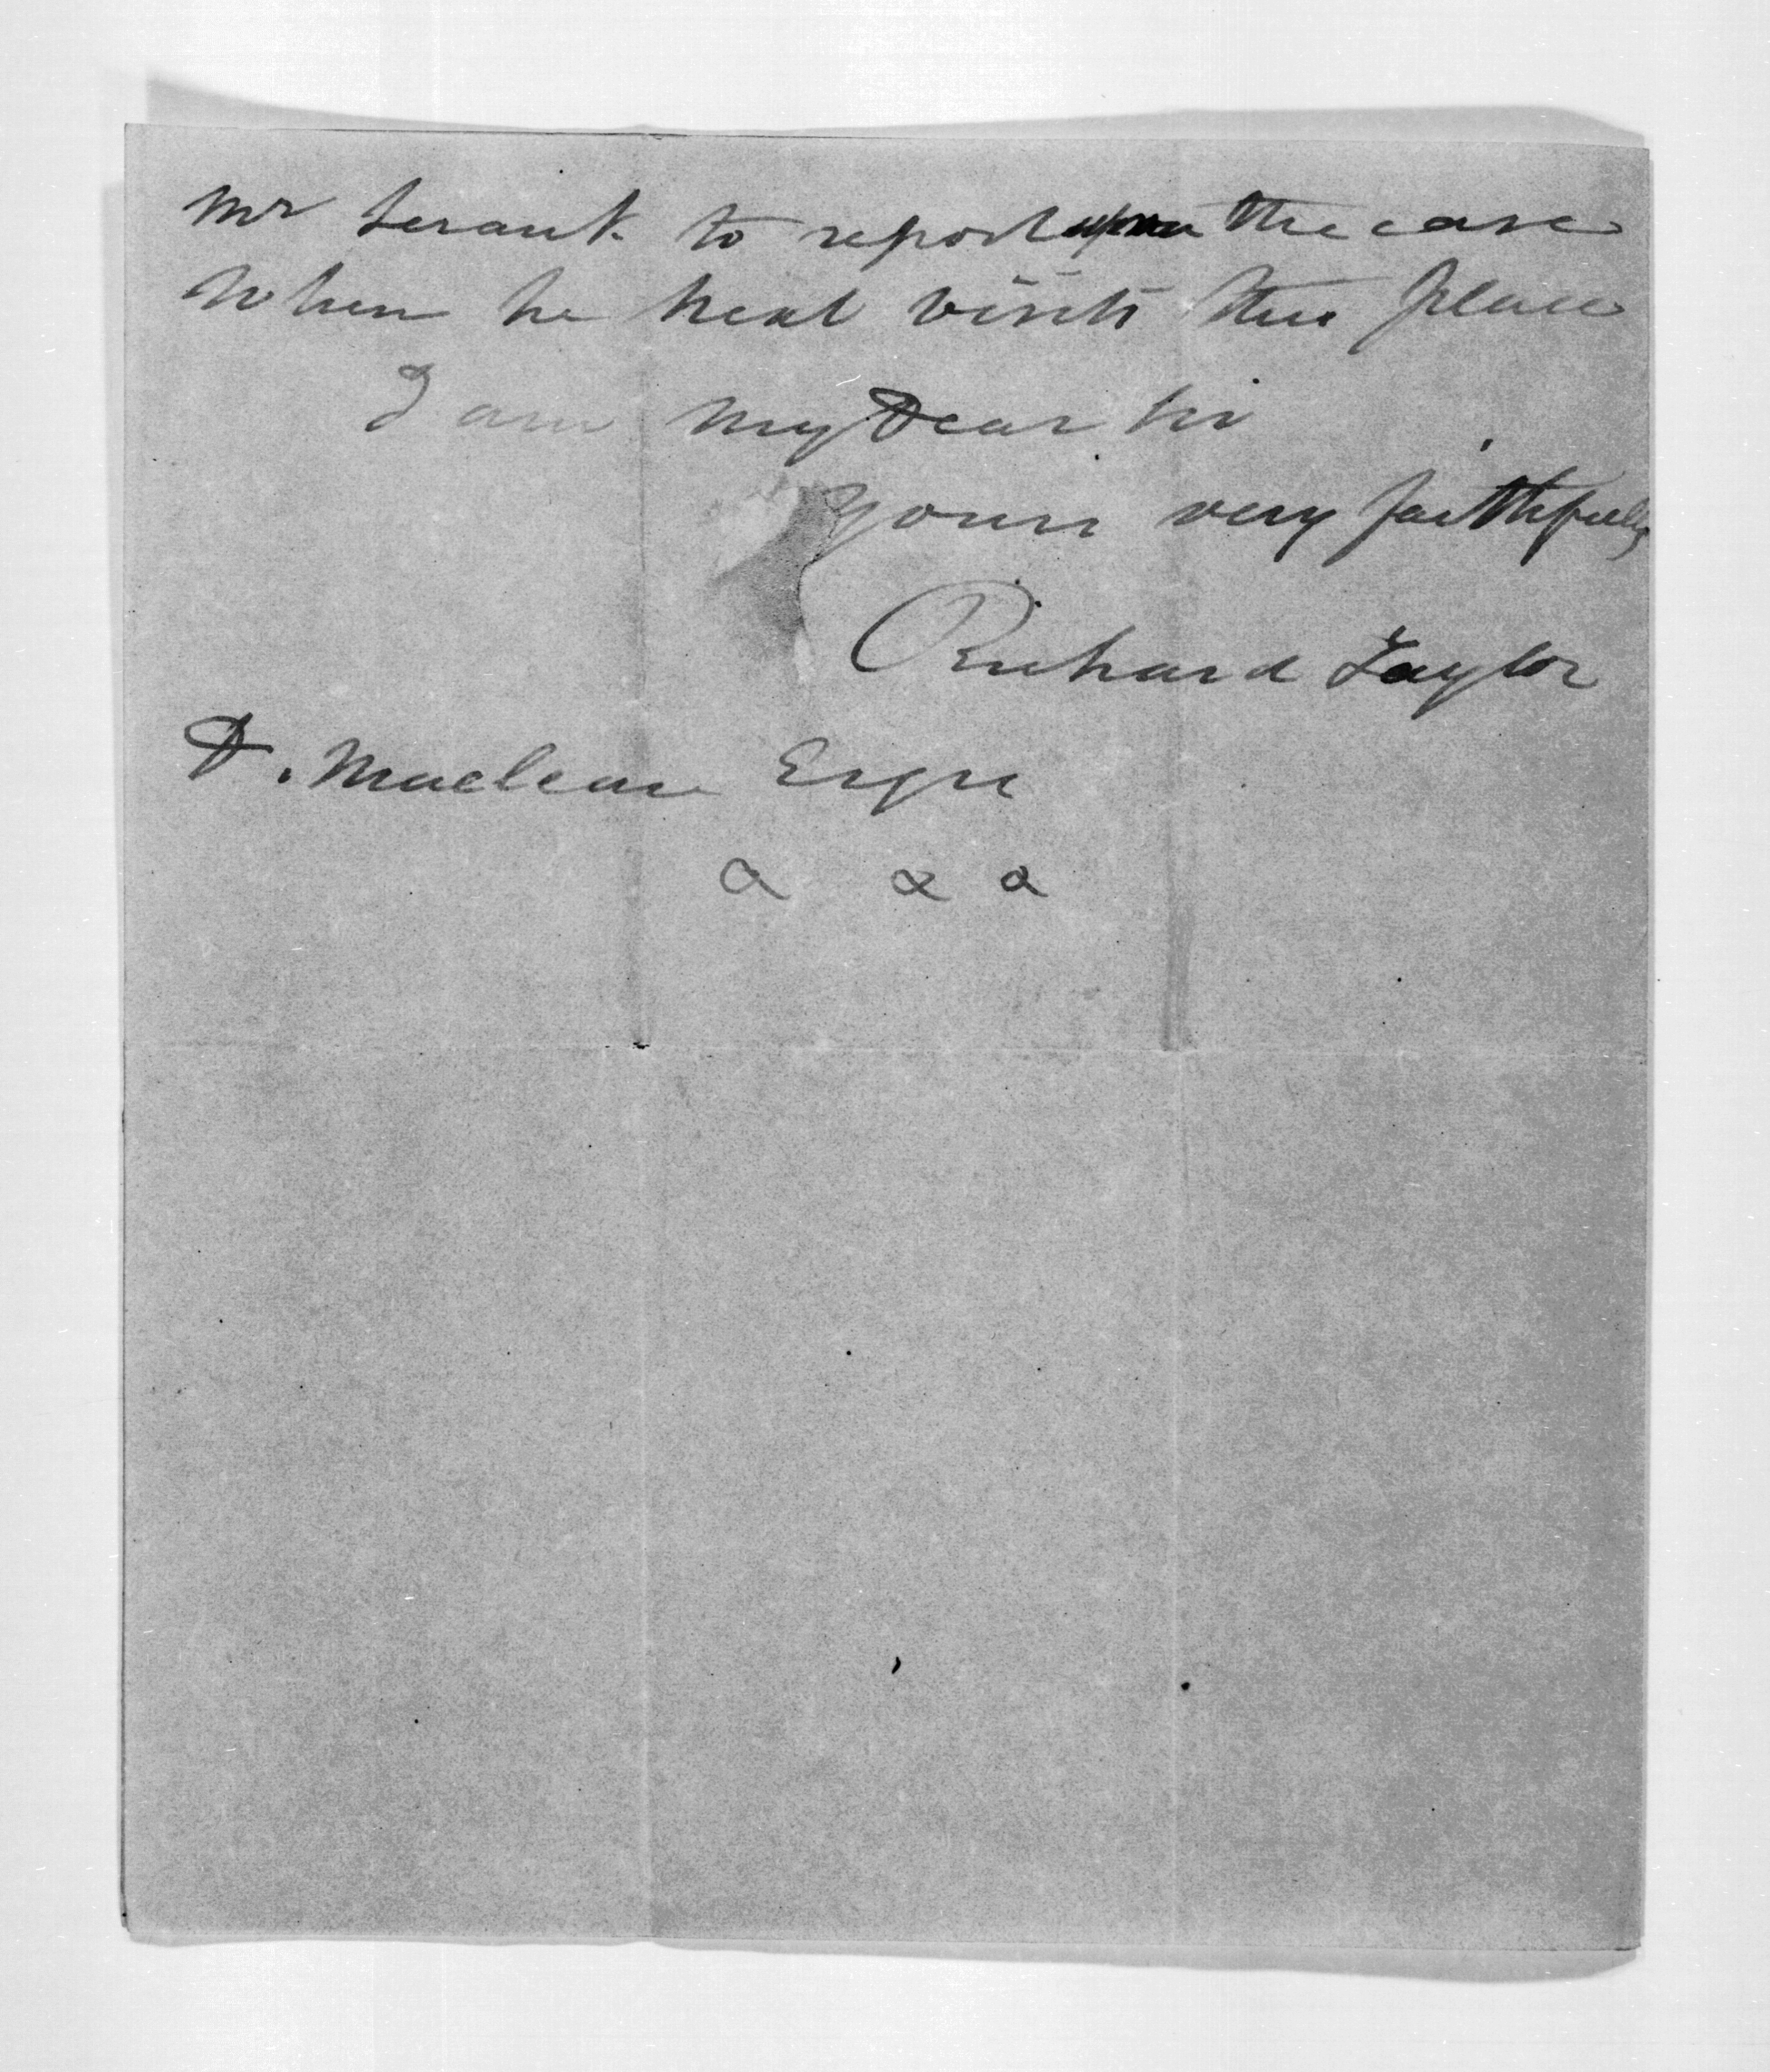 Mr Serank to report upon the case
When he next visits this place
I am My Dear Sir
yours very faithfully
Richard Taylor
D. Maclean Esqre
a a a